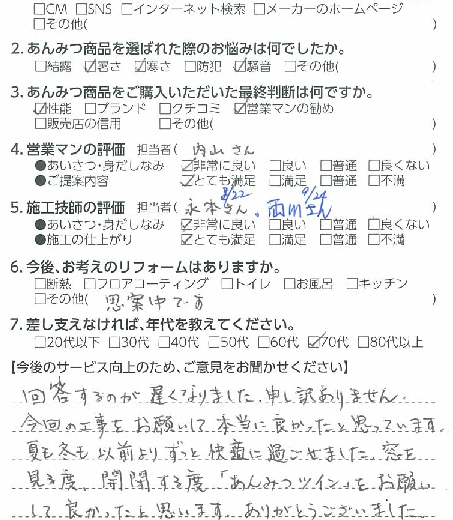 □CM □SNS □インターネット検索 □メーカーのホームページ
□その他( )
2.あんみつ商品を選ばれた際のお悩みは何でしたか。
□結露 ☑暑さ ☑寒さ □防犯 ☑騒音 □その他( )
3.あんみつ商品をご購入いただいた最終判断は何ですか。
☑性能 □ブランド □クチコミ ☑営業マンの勧め
□販売店の信用 □その他( )
4.営業マンの評価 担当者( 内山さん )
●あいさつ・身だしなみ ☑非常に良い □良い □普通 □良くない
●ご提案内容 ☑とても満足 □満足 □普通 □不満
8/22 9/24
5.施工技師の評価 担当者( 永本さん、西川さん )
●あいさつ・身だしなみ ☑非常に良い □良い □普通 □良くない
●施工の仕上がり ☑とても満足 □満足 □普通 □不満
6.今後、お考えのリフォームはありますか。
□断熱 □フロアコーティング □トイレ □お風呂 □キッチン
□その他( 思案中です )
7.差し支えなければ、年代を教えてください。
□20代以下 □30代 □40代 □50代 □60代 ☑70代 □80代以上
【今後のサービス向上のため、ご意見をお聞かせください】
回答するのが遅くなりました。申し訳ありません。
今回の工事をお願いして本当に良かったと思っています。
夏も冬も以前よりずっと快適に過ごせました。窓を
見る度、開閉する度「あんみつツイン」をお願い
して良かったと思います。ありがとうございました。